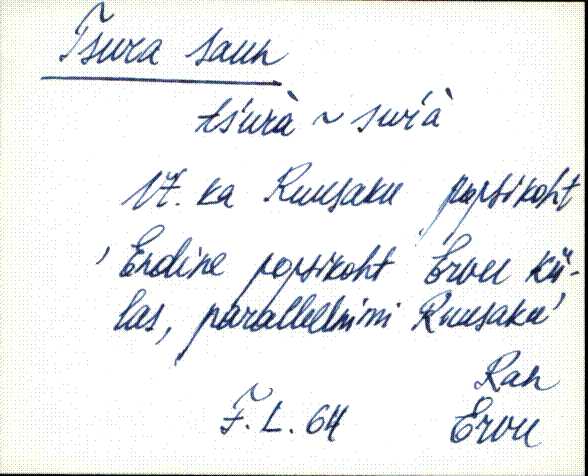 Tsura saun
ts'urà ~ sur'à
vt. ka Ruusaku popsikoht
'Endine popsikoht Ervu kü-
las, paralleelnimi Ruusaku'
Rah
F. L. 64 Ervu